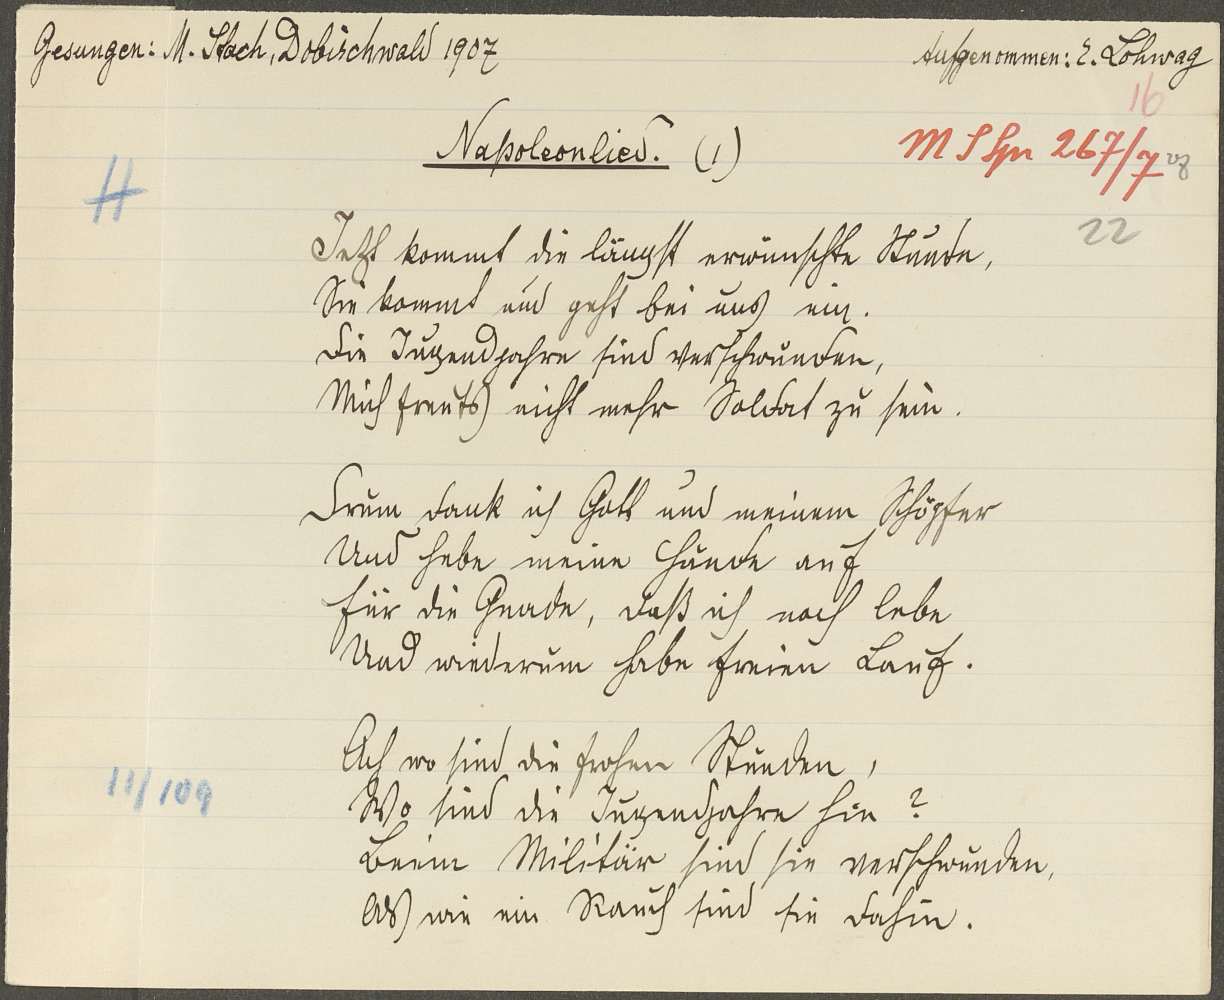 Gesungen: M. Stach, Dobischwald 1907
Aufgenommen: E. Lohwag
16
Napoleonlied. (1)
267/7
H
22
Jetzt kommt die längst erwünschte Stunde,
Sie kommt und geht bei uns ein.
Die Jugendjahre sind verschwunden,
Mich freuts nicht mehr Soldat zu sein.
Drum dank ich Gott und meinem Schöpfer
Und hebe meine Hände auf
Für die Gnade, daß ich noch lebe
Und wiederum habe freien Lauf.
Ach wo sind die frohen Stunden,
Wo sind die Jugendjahre hin?
Beim Militär sind sie verschwunden,
Als wie ein Rauch sind sie dahin.
11/109